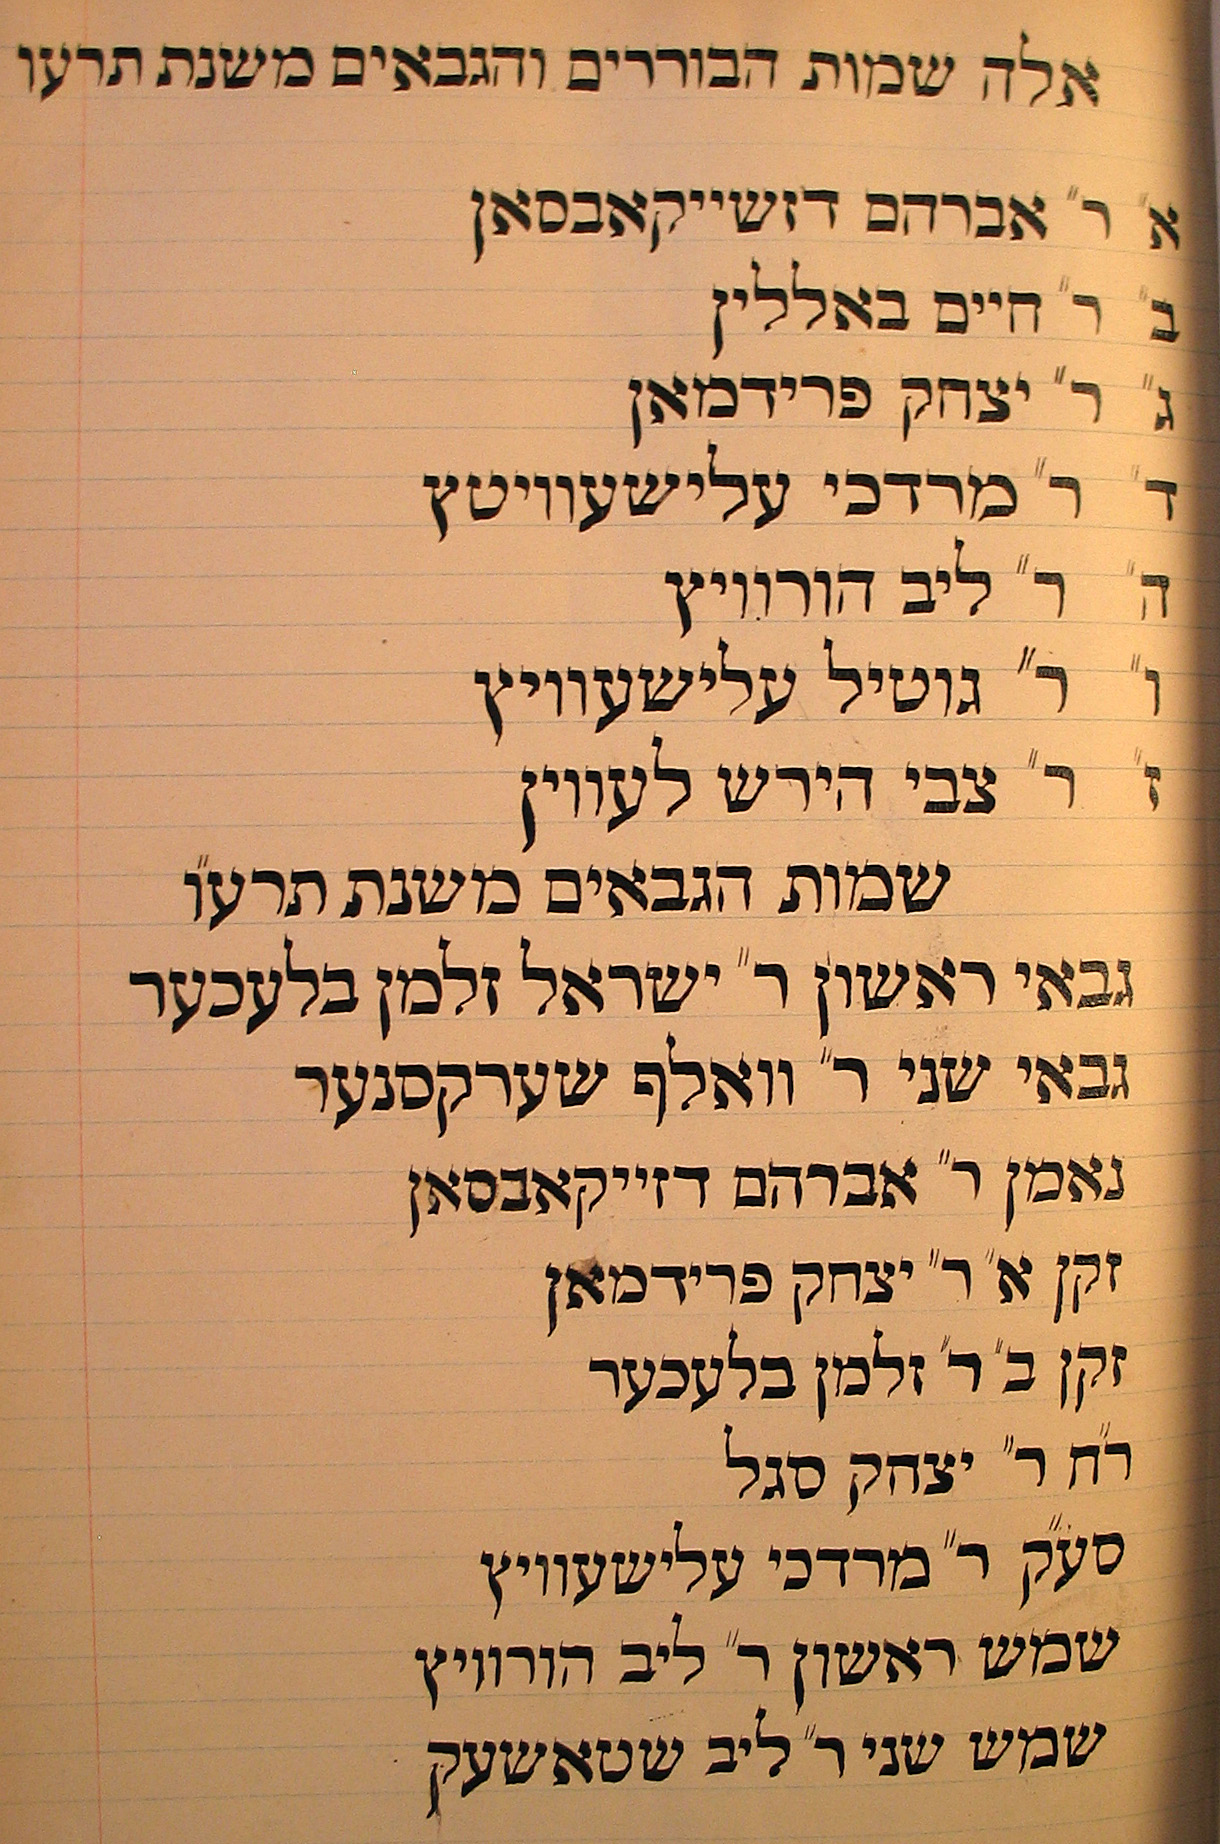 אלה שמות הבוררים והגבאים משנת תרעו
א" ר" אברהם דזשייקאבסאן
ב" ר" חיים באללין
ג" ר" יצחק פרידמאן
ד" ר" מרדכי עלישעוויטץ
ה" ר" ליב הורוויץ
ו" ר" גוטיל עלישעוויץ
ז" ר" צבי הירש לעווין
שמות הגבאים משנת תרע"ו
גבאי ראשון ר" ישראל זלמן בלעכער
גבאי שני ר" וואלף שערקסנער
נאמן ר" אברהם דזייקאבסאן
זקן א" ר" יצחק פרידמאן
זקן ב" ר" זלמן בלעכער
ר"ח ר" יצחק סגל
סע"ק ר" מרדכי עלישעוויץ
שמש ראשון ר" ליב הורוויץ
שמש שני ר" ליב שטאשעק